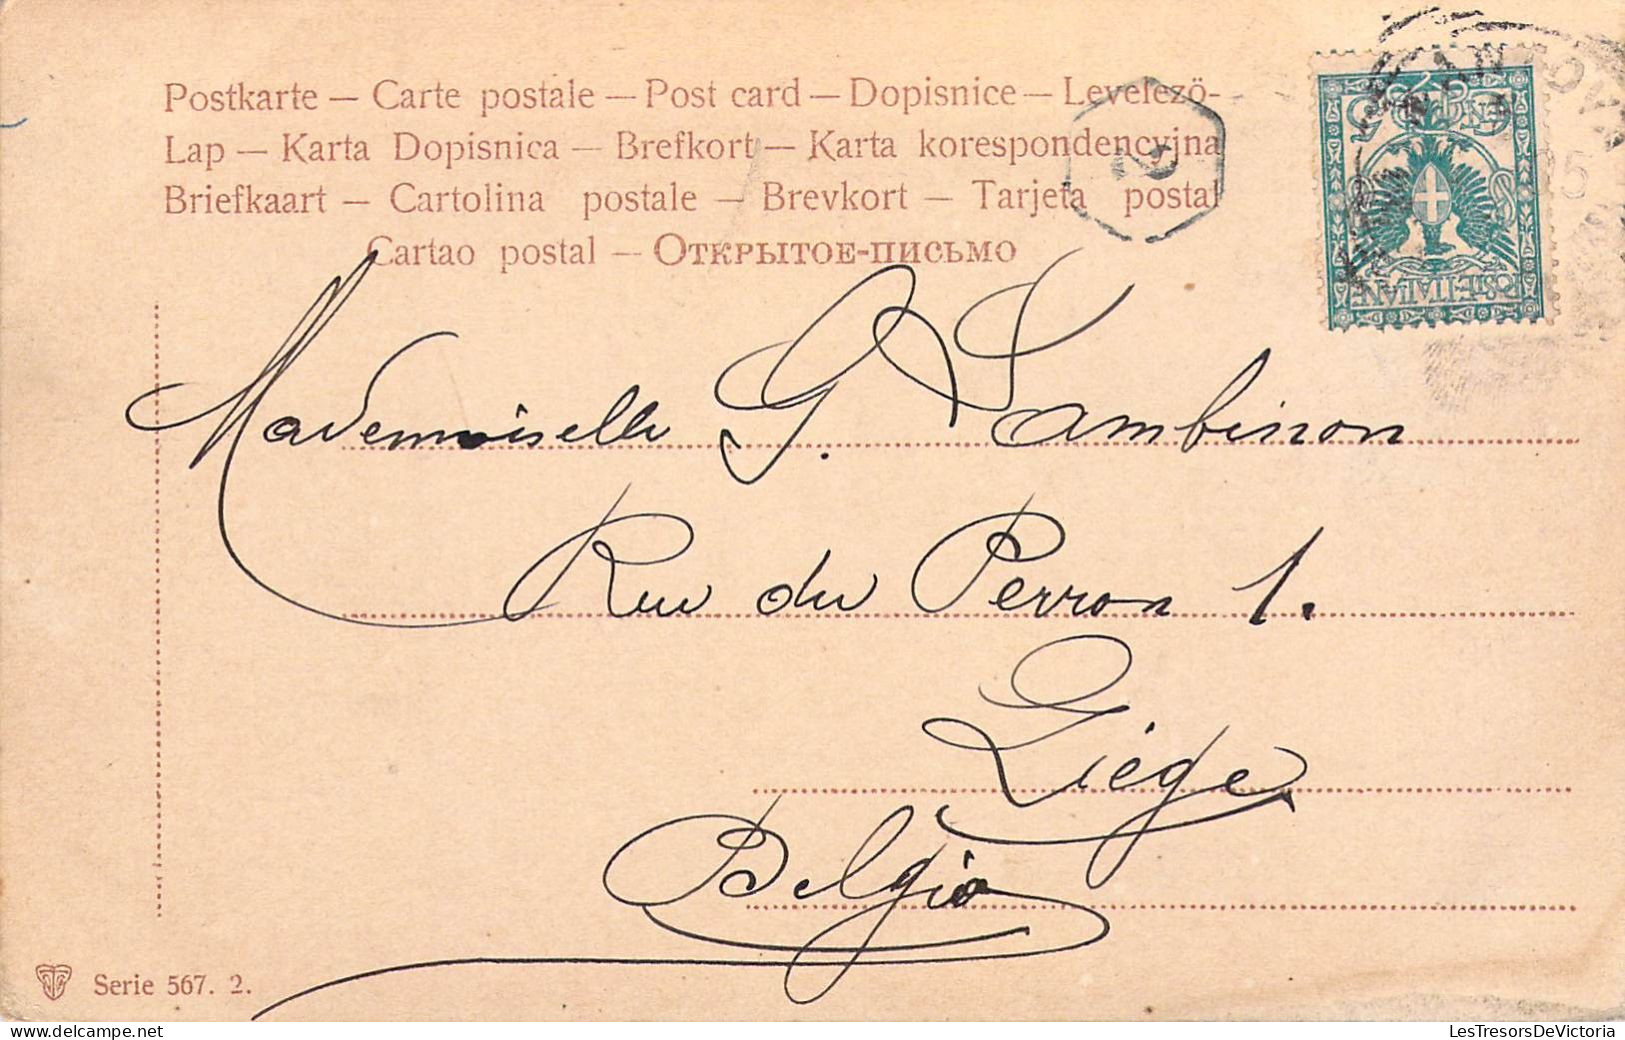 Postkarte — Carte postale — Post card — Dopisnice — Levelező-
Lap — Karta Dopisnica — Brefkort — Karta korespondencyjna
Briefkaart — Cartolina postale — Brevkort — Tarjeta postal
Cartao postal — Открытое-письмо
2
POSTE·ITALIANE
Mademoiselle G. Lambinon
Rue du Perron 1.
Liége
Belgio
Serie 567. 2.
LesTresorsDeVictoria